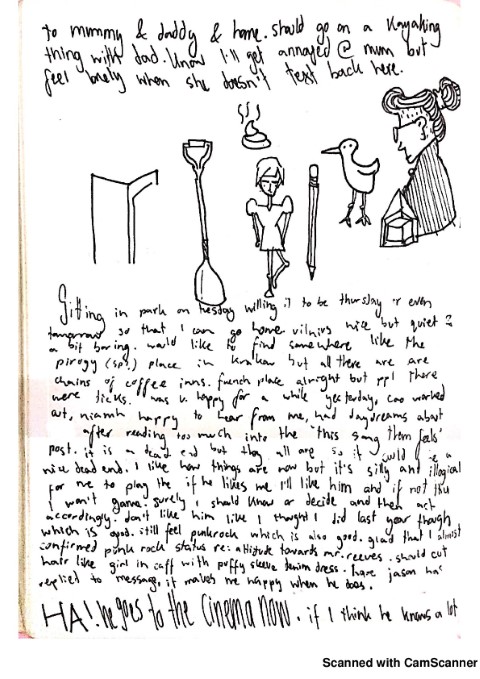 to mummy & daddy & home. should go on a kayaking
thing with dad. know I'll get annoyed @ mum but
feel lonely when she doesn't text back here.
Sitting in park on tuesday willing it to be thursday or even
tomorrow so that I can go home. vilnius nice but quiet &
a bit boring. would like to find somewhere like the
pirogy (sp?) place in krakow but all there are are
chains of coffee inns. french place alright but ppl there
were dicks. was v. happy for a while yesterday, cao worked
out, niamh happy to hear from me, had daydreams about
after reading too much into the "this song them feels"
post. it is a dead end but they all are so it could be a
nice dead end. I like how things are now but it's silly and illogical
for me to play the if he likes me I'll like him and if not thn
I won't game. surely I should know or decide and then act
accordingly. don't like him like I thought I did last year though
which is good. still feel punkrock which is also good. glad that I almost
confirmed punk rock status re: attitude towards mr. reeves. should cut
hair like girl in caff with puffy sleeve denim dress. hope jason has
replied to message, it makes me happy when he does.
HA! he goes to the cinema now. if I think he knows a lot
Scanned with CamScanner